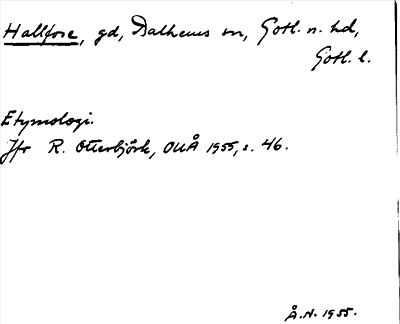 Hallfose, gd, Dalhems sn, Gotl. n. hd,
Gotl. l.
Etymologi.
Jfr R. Otterbjörk, OUÅ 1955, s. 46.
Å.N. 1955.